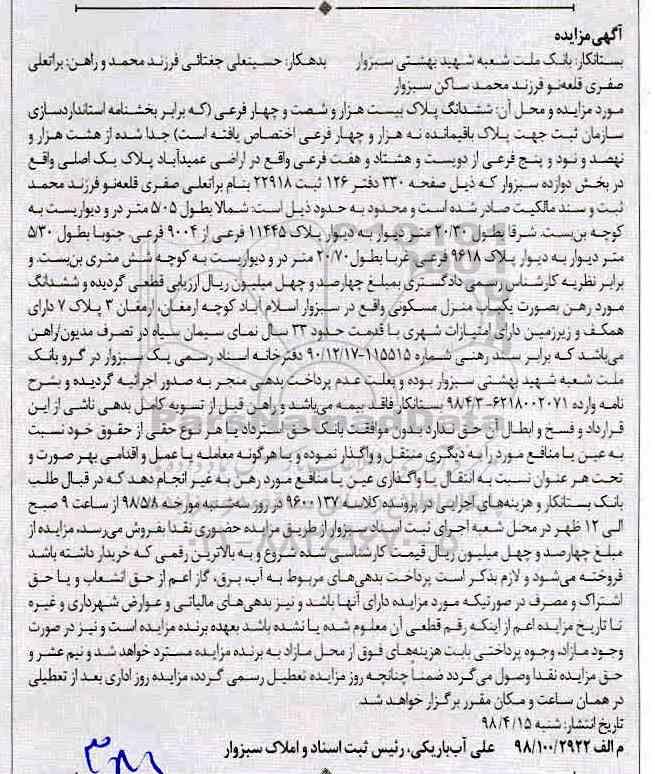 آگهی مزایده
بستانکار: بانک ملت شعبه شهید بهشتی سبزوار بدهکار: حسینعلی جغتائی فرزند محمد و راهن: براتعلی
صفری قلعه‌نو فرزند محمد ساکن سبزوار
مورد مزایده و محل آن: ششدانگ پلاک بیست هزار و شصت و چهار فرعی (که برابر بخشنامه استانداردسازی
سازمان ثبت جهت پلاک باقیمانده نه هزار و چهار فرعی اختصاص یافته است) جدا شده از هشت هزار و
نهصد و نود و پنج فرعی از دویست و هشتاد و هفت فرعی واقع در اراضی عمیدآباد پلاک یک اصلی واقع
در بخش دوازده سبزوار که ذیل صفحه ۳۳۰ دفتر ۱۲۶ ثبت ۲۲۹۱۸ بنام براتعلی صفری قلعه‌نو فرزند محمد
ثبت و سند مالکیت صادر شده است و محدود به حدود ذیل است: شمالا بطول ۵/۰۵ متر در و دیواریست به
کوچه بن‌بست. شرقا بطول ۲۰/۳۰ متر دیوار به دیوار پلاک ۱۱۴۴۵ فرعی از ۹۰۰۴ فرعی. جنوبا بطول ۵/۳۰
متر دیوار به دیوار پلاک ۹۶۱۸ فرعی غربا بطول ۲۰/۷۰ متر در و دیواریست به کوچه شش متری بن‌بست. و
برابر نظریه کارشناس رسمی دادگستری بمبلغ چهارصد و چهل میلیون ریال ارزیابی قطعی گردیده و ششدانگ
مورد رهن بصورت یکباب منزل مسکونی واقع در سبزوار اسلام آباد کوچه ارمغان، ارمغان ۳ پلاک ۷ دارای
همکف و زیرزمین دارای امتیازات شهری با قدمت حدود ۳۳ سال نمای سیمان سیاه در تصرف مدیون/راهن
می‌باشد که برابر سند رهنی شماره ۱۱۵۵۱۵-۹۰/۱۲/۱۷ دفترخانه اسناد رسمی یک سبزوار در گرو بانک
ملت شعبه شهید بهشتی سبزوار بوده و بعلت عدم پرداخت بدهی منجر به صدور اجرائیه گردیده و بشرح
نامه وارده ۶۲۱۸۰۰۲۰۷۱-۹۸/۴/۳ بستانکار فاقد بیمه می‌باشد و راهن قبل از تسویه کامل بدهی ناشی از این
قرارداد و فسخ و ابطال آن حق ندارد بدون موافقت بانک حق استرداد یا هر نوع حقی از حقوق خود نسبت
به عین یا منافع مورد را به دیگری منتقل و واگذار نموده و یا هرگونه معامله یا عمل و اقدامی بهر صورت و
تحت هر عنوان نسبت به انتقال یا واگذاری عین یا منافع مورد رهن به غیر انجام دهد که در قبال طلب
بانک بستانکار و هزینه‌های اجرایی در پرونده کلاسه ۹۶۰۰۱۳۷ در روز سه‌شنبه مورخه ۹۸/۵/۸ از ساعت ۹ صبح
الی ۱۲ ظهر در محل شعبه اجرای ثبت اسناد سبزوار از طریق مزایده حضوری نقدا بفروش می‌رسد، مزایده از
مبلغ چهارصد و چهل میلیون ریال قیمت کارشناسی شده شروع و به بالاترین رقمی که خریدار داشته باشد
فروخته می‌شود و لازم بذکر است پرداخت بدهی‌های مربوط به آب، برق، گاز اعم از حق انشعاب و یا حق
اشتراک و مصرف در صورتیکه مورد مزایده دارای آنها باشد و نیز بدهی‌های مالیاتی و عوارض شهرداری و غیره
تا تاریخ مزایده اعم از اینکه رقم قطعی آن معلوم شده یا نشده باشد بعهده برنده مزایده است و نیز در صورت
وجود مازاد، وجوه پرداختی بابت هزینه‌های فوق از محل مازاد به برنده مزایده مسترد خواهد شد و نیم عشر و
حق مزایده نقدا وصول می‌گردد ضمناً چنانچه روز مزایده تعطیل رسمی گردد، مزایده روز اداری بعد از تعطیلی
در همان ساعت و مکان مقرر برگزار خواهد شد.
تاریخ انتشار: شنبه ۹۸/۴/۱۵
م الف ۹۸/۱۰۰/۲۹۲۲ علی آب‌باریکی، رئیس ثبت اسناد و املاک سبزوار